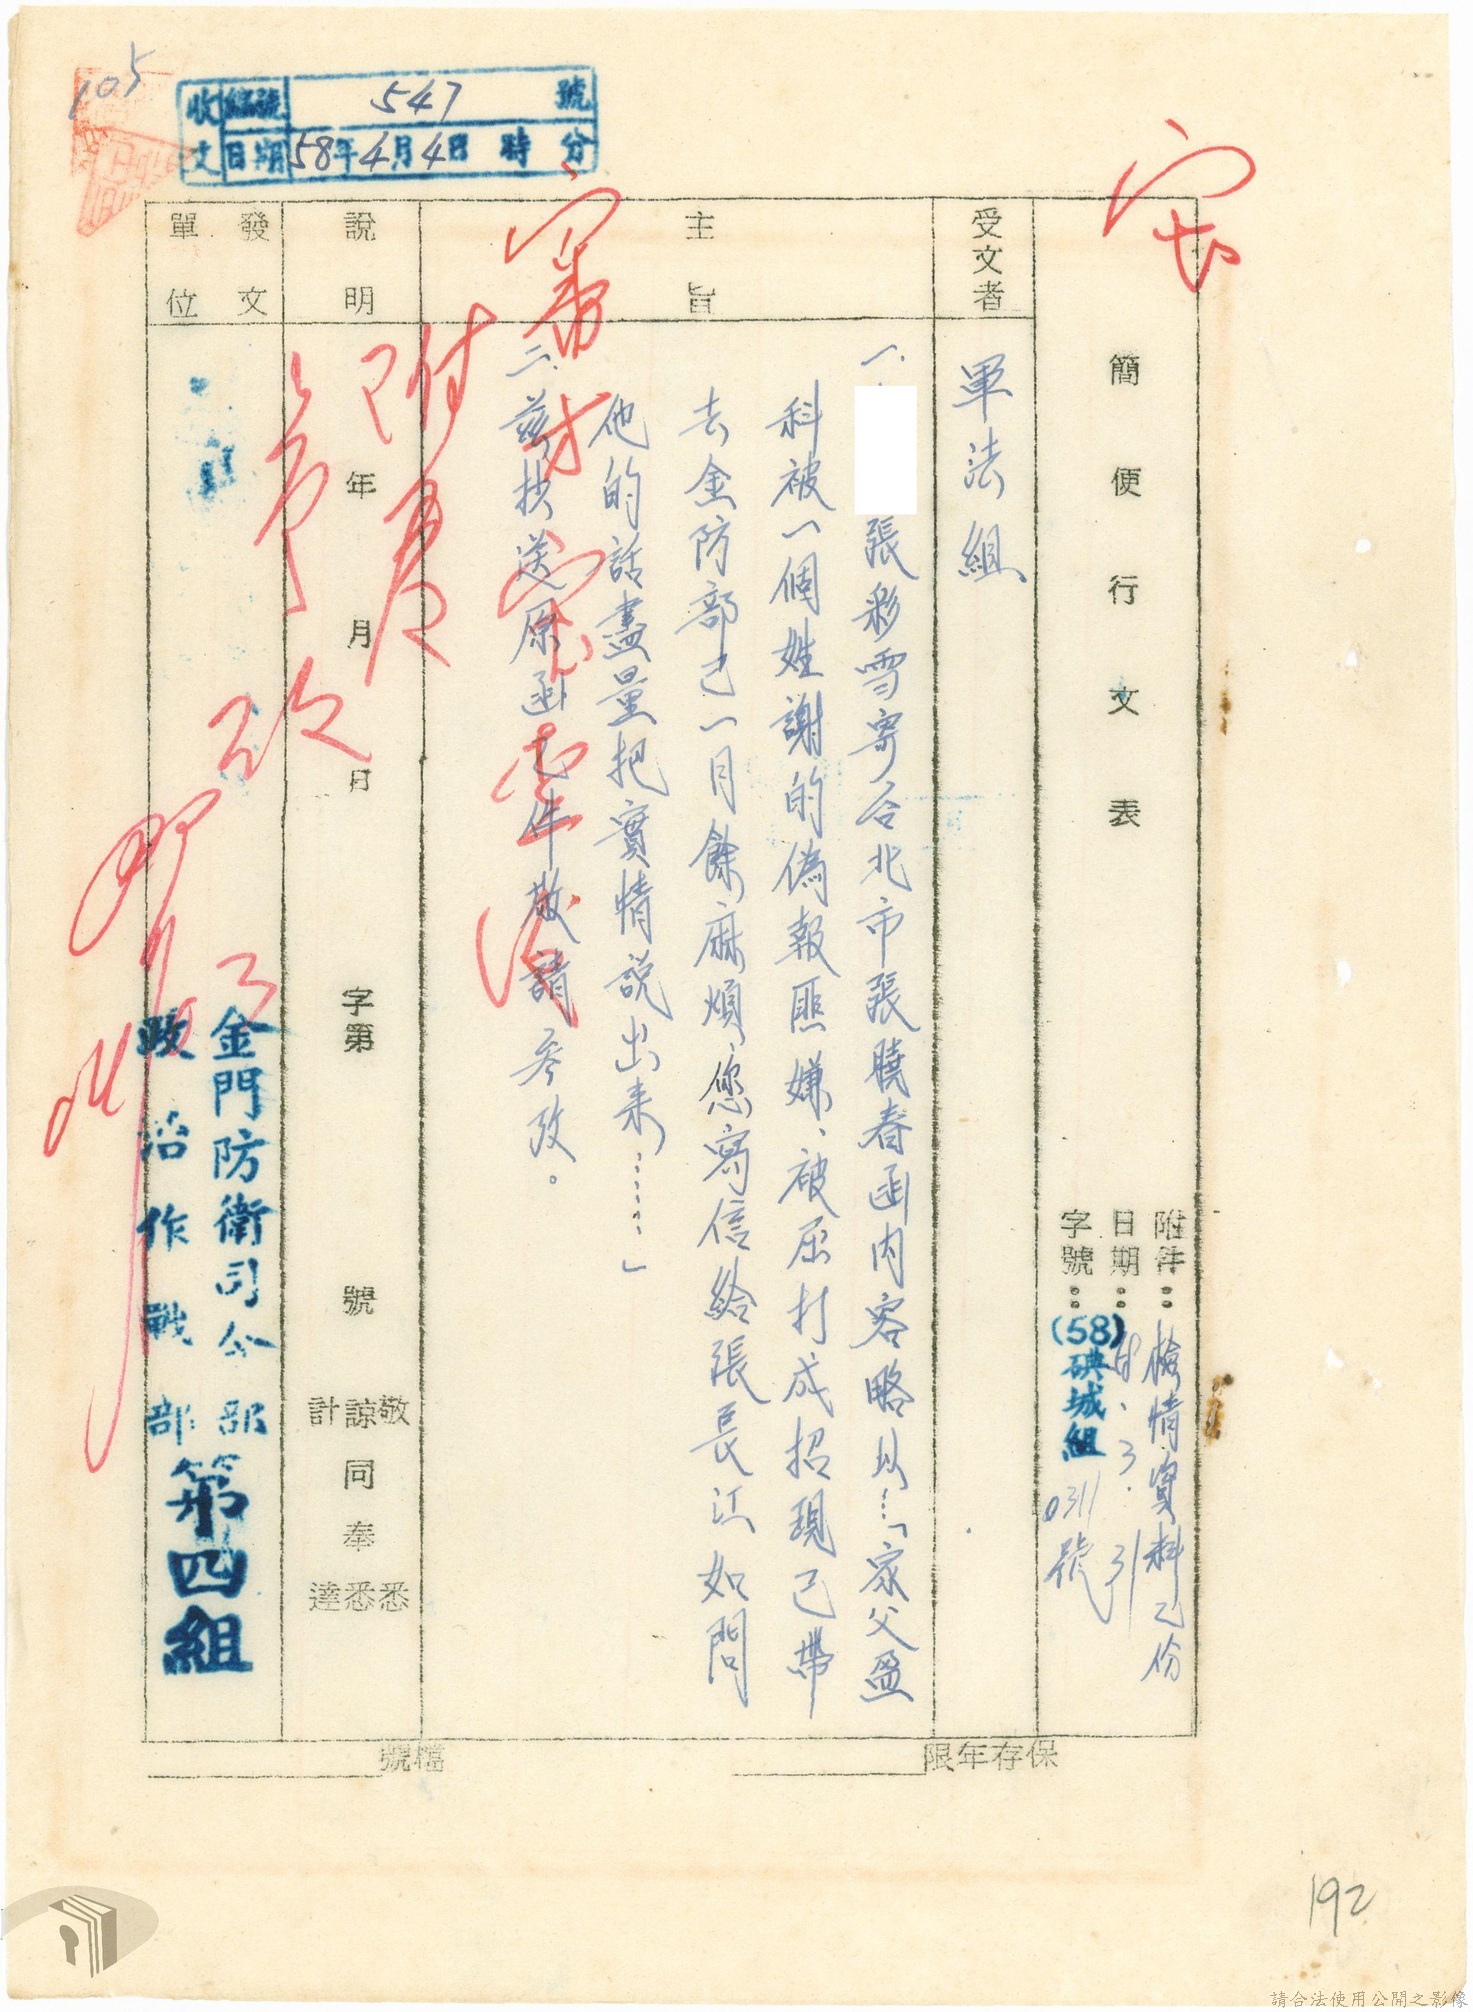 105
收文 編號 547 號
日期 58年4月4日 時 分
簡便行文表
附件：檢情資料乙份
日期：58.3.31
字號：(58)碘城組0311號
受文者
軍法組
主旨
一.張彩雪寄台北市張曉春函內容略以…「家父盈
科被一個姓謝的偽報匪嫌、被屈打成招現已帶
去金防部已一月餘麻煩您寫信給張長江如問
他的話盡量把實情說出來……」
二.茲抄送原函乙件敬請參攷。
說明
年 月 日 字第 號
敬悉
諒悉
計達
同奉
發文單位
金門防衛司令部
政治作戰部
第四組
保存年限
檔號
192
請合法使用公開之影像